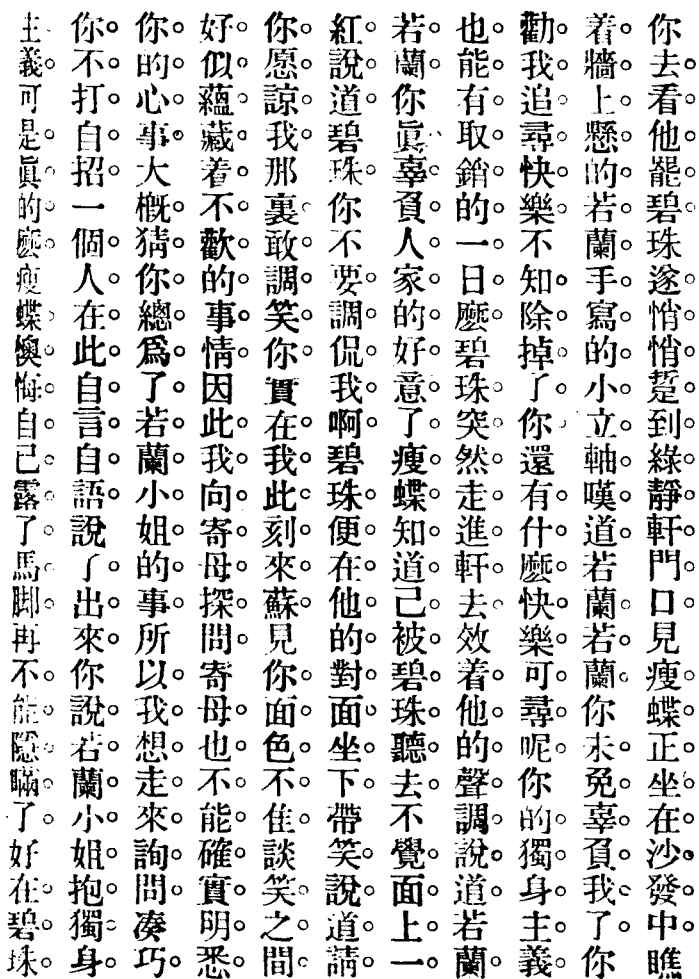 你去看他罷碧珠遂悄悄踅到綠靜軒門口見瘦蝶正坐在沙發中瞧
着牆上懸的若蘭手寫的小立軸嘆道若蘭若蘭你未免辜負我了你
勸我追尋快樂不知除掉了你還有什麽快樂可尋呢你的獨身主義
也能有取銷的一日麽碧珠突然走進軒去效着他的聲調說道若蘭
若蘭你眞辜負人家的好意了瘦蝶知道己被碧珠聽去不覺面上一
紅說道碧珠你不要調侃我啊碧珠便在他的對面坐下帶笑說道請
你愿諒我那裏敢調笑你實在我此刻來蘇見你面色不佳談笑之間
好似蘊藏着不歡的事情因此我向寄母探問寄母也不能確實明悉
你的心事大槪猜你總爲了若蘭小姐的事所以我想走來詢問凑巧
你不打自招一個人在此自言自語說了出來你說若蘭小姐抱獨身
主義可是眞的麽瘦蝶懊悔自己露了馬脚再不能隱瞞了好在碧珠